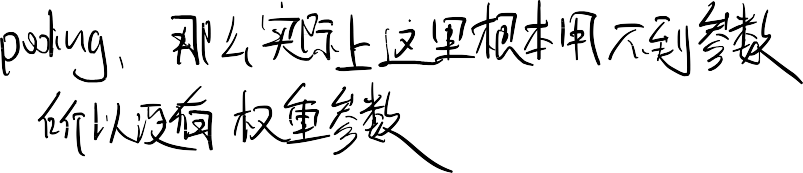 pooling、那么实际上这里根本用不到参数
所以没有权重参数